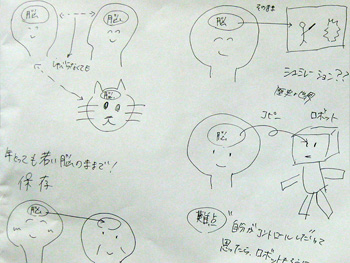 脳
脳
しゃべらなくても
脳
年とっても若い脳のままで!
保存
脳
そのまま
脳
シュミレーション??
コピー
ロボット
脳
難点
自分がコントロールしたいと
思ったら、ロボット